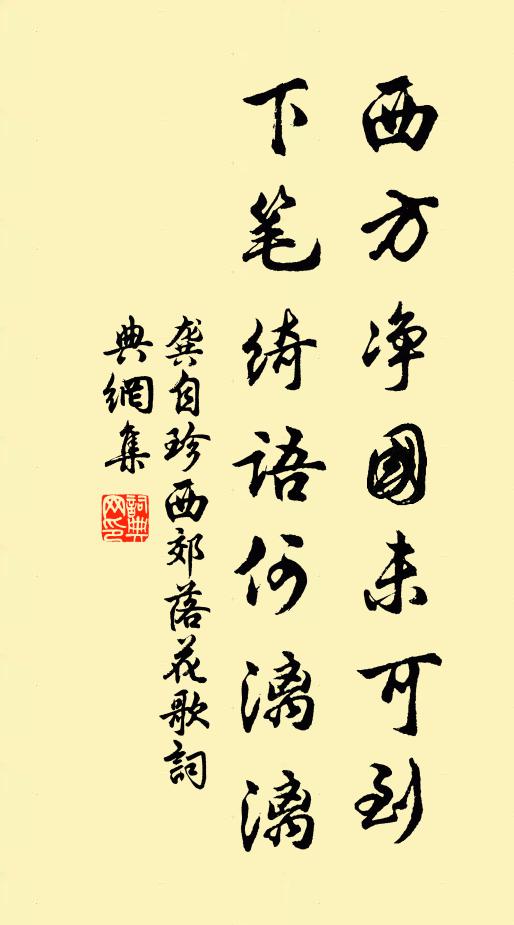 西方净國未可到
下笔綺語何漓漓
龚自珍西郊落花歌詞
典網集
詞典
网印